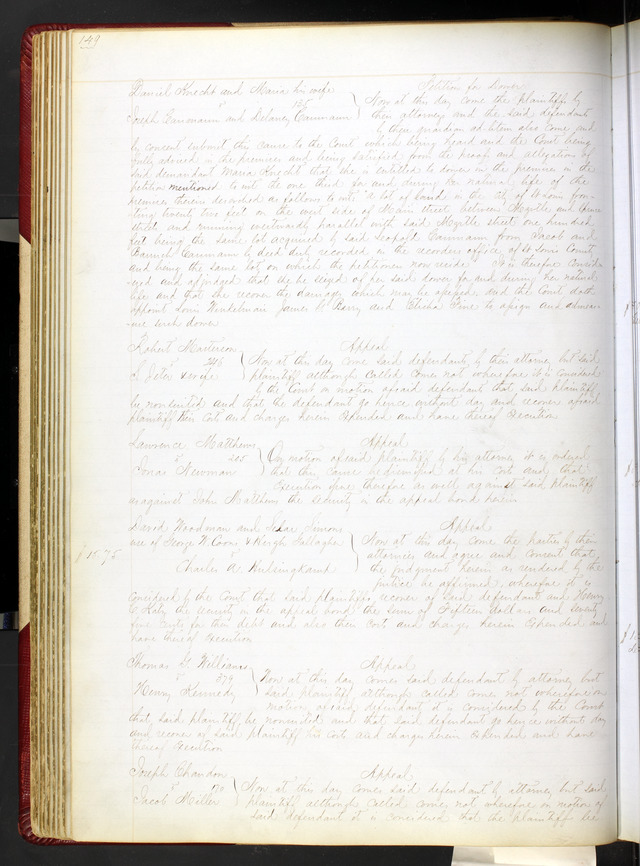 149
Daniel Knecht and Maria his wife Petition for Dower
vs 135 Now at this day come the plaintiffs by
Joseph Cammann and Delaney Cammann their attorney and the said defendant
by their guardian ad litem also come and
by consent submit this cause to the Court which being heard and the Court being
fully advised in the premises and being satisfied from the proof and allegation of
said demandant Maria Knecht that she is entitled to dower in the premises in the
petition mentioned to wit the one third for and during her natural life of the
premises therein described as follows to wit a lot of land in the city of St Louis fron-
ting twenty two feet on the west side of Main street between Myrtle and
street and running westwardly parallel with said Myrtle street one hundred
feet being the same lot acquired by said Cammann from Jacob and
Cammann by deed duly recorded in the recorders office of St Louis County
and being the same lot on which the petitioners now reside It is therefore consid-
ered and adjudged that she be seized of her said dower for and during her natural
life and that she recover the damages which may be assessed and the Court doth
appoint Louis James and Elisha to assign and admea-
sure such dower
Robert Masterson Appeal
vs 246 Now at this day come said defendants by their attorney but said
Jeter & wife plaintiff although called comes not wherefore it is considered
by the Court on motion of said defendant that said plaintiff
be nonsuited and that the defendant go hence without day and recover of said
plaintiff their cost and charges herein expended and have thereof execution
Lawrence Matthews Appeal
vs 205 On motion of said plaintiff by his attorney it is ordered
Jonas Newman that this cause be dismissed at his cost and that
execution issue therefore as well against said plaintiff
as against John Matthews the security in the appeal bond herein
David Woodman and Simons Appeal
use of George W Coons & Hugh Gallagher Now at this day come the parties by their
$15.75 vs attornies and agree and consent that
Charles A. the judgment herein as rendered by the
justice be affirmed, wherefore it is
considered by the Court that said plaintiffs recover of said defendant and Henry
C Katz the security in the appeal bond the sum of Fifteen dollars and seventy
five cents for their debt and also their cost and charges herein expended and
have thereof execution
Thomas G Williams Appeal
vs 379 Now at this day comes said defendant by attorney but
Henry Kennedy said plaintiff although called comes not wherefore on
motion of said defendant it is considered by the Court
that said plaintiff be nonsuited and that said defendant go hence without day
and recover of said plaintiff his cost and charges herein expended and have
thereof execution
Joseph Chandon Appeal
vs Now at this day comes said defendant by attorney but said
Jacob Miller plaintiff although called comes not wherefore on motion of
said defendant it is considered that the plaintiff be